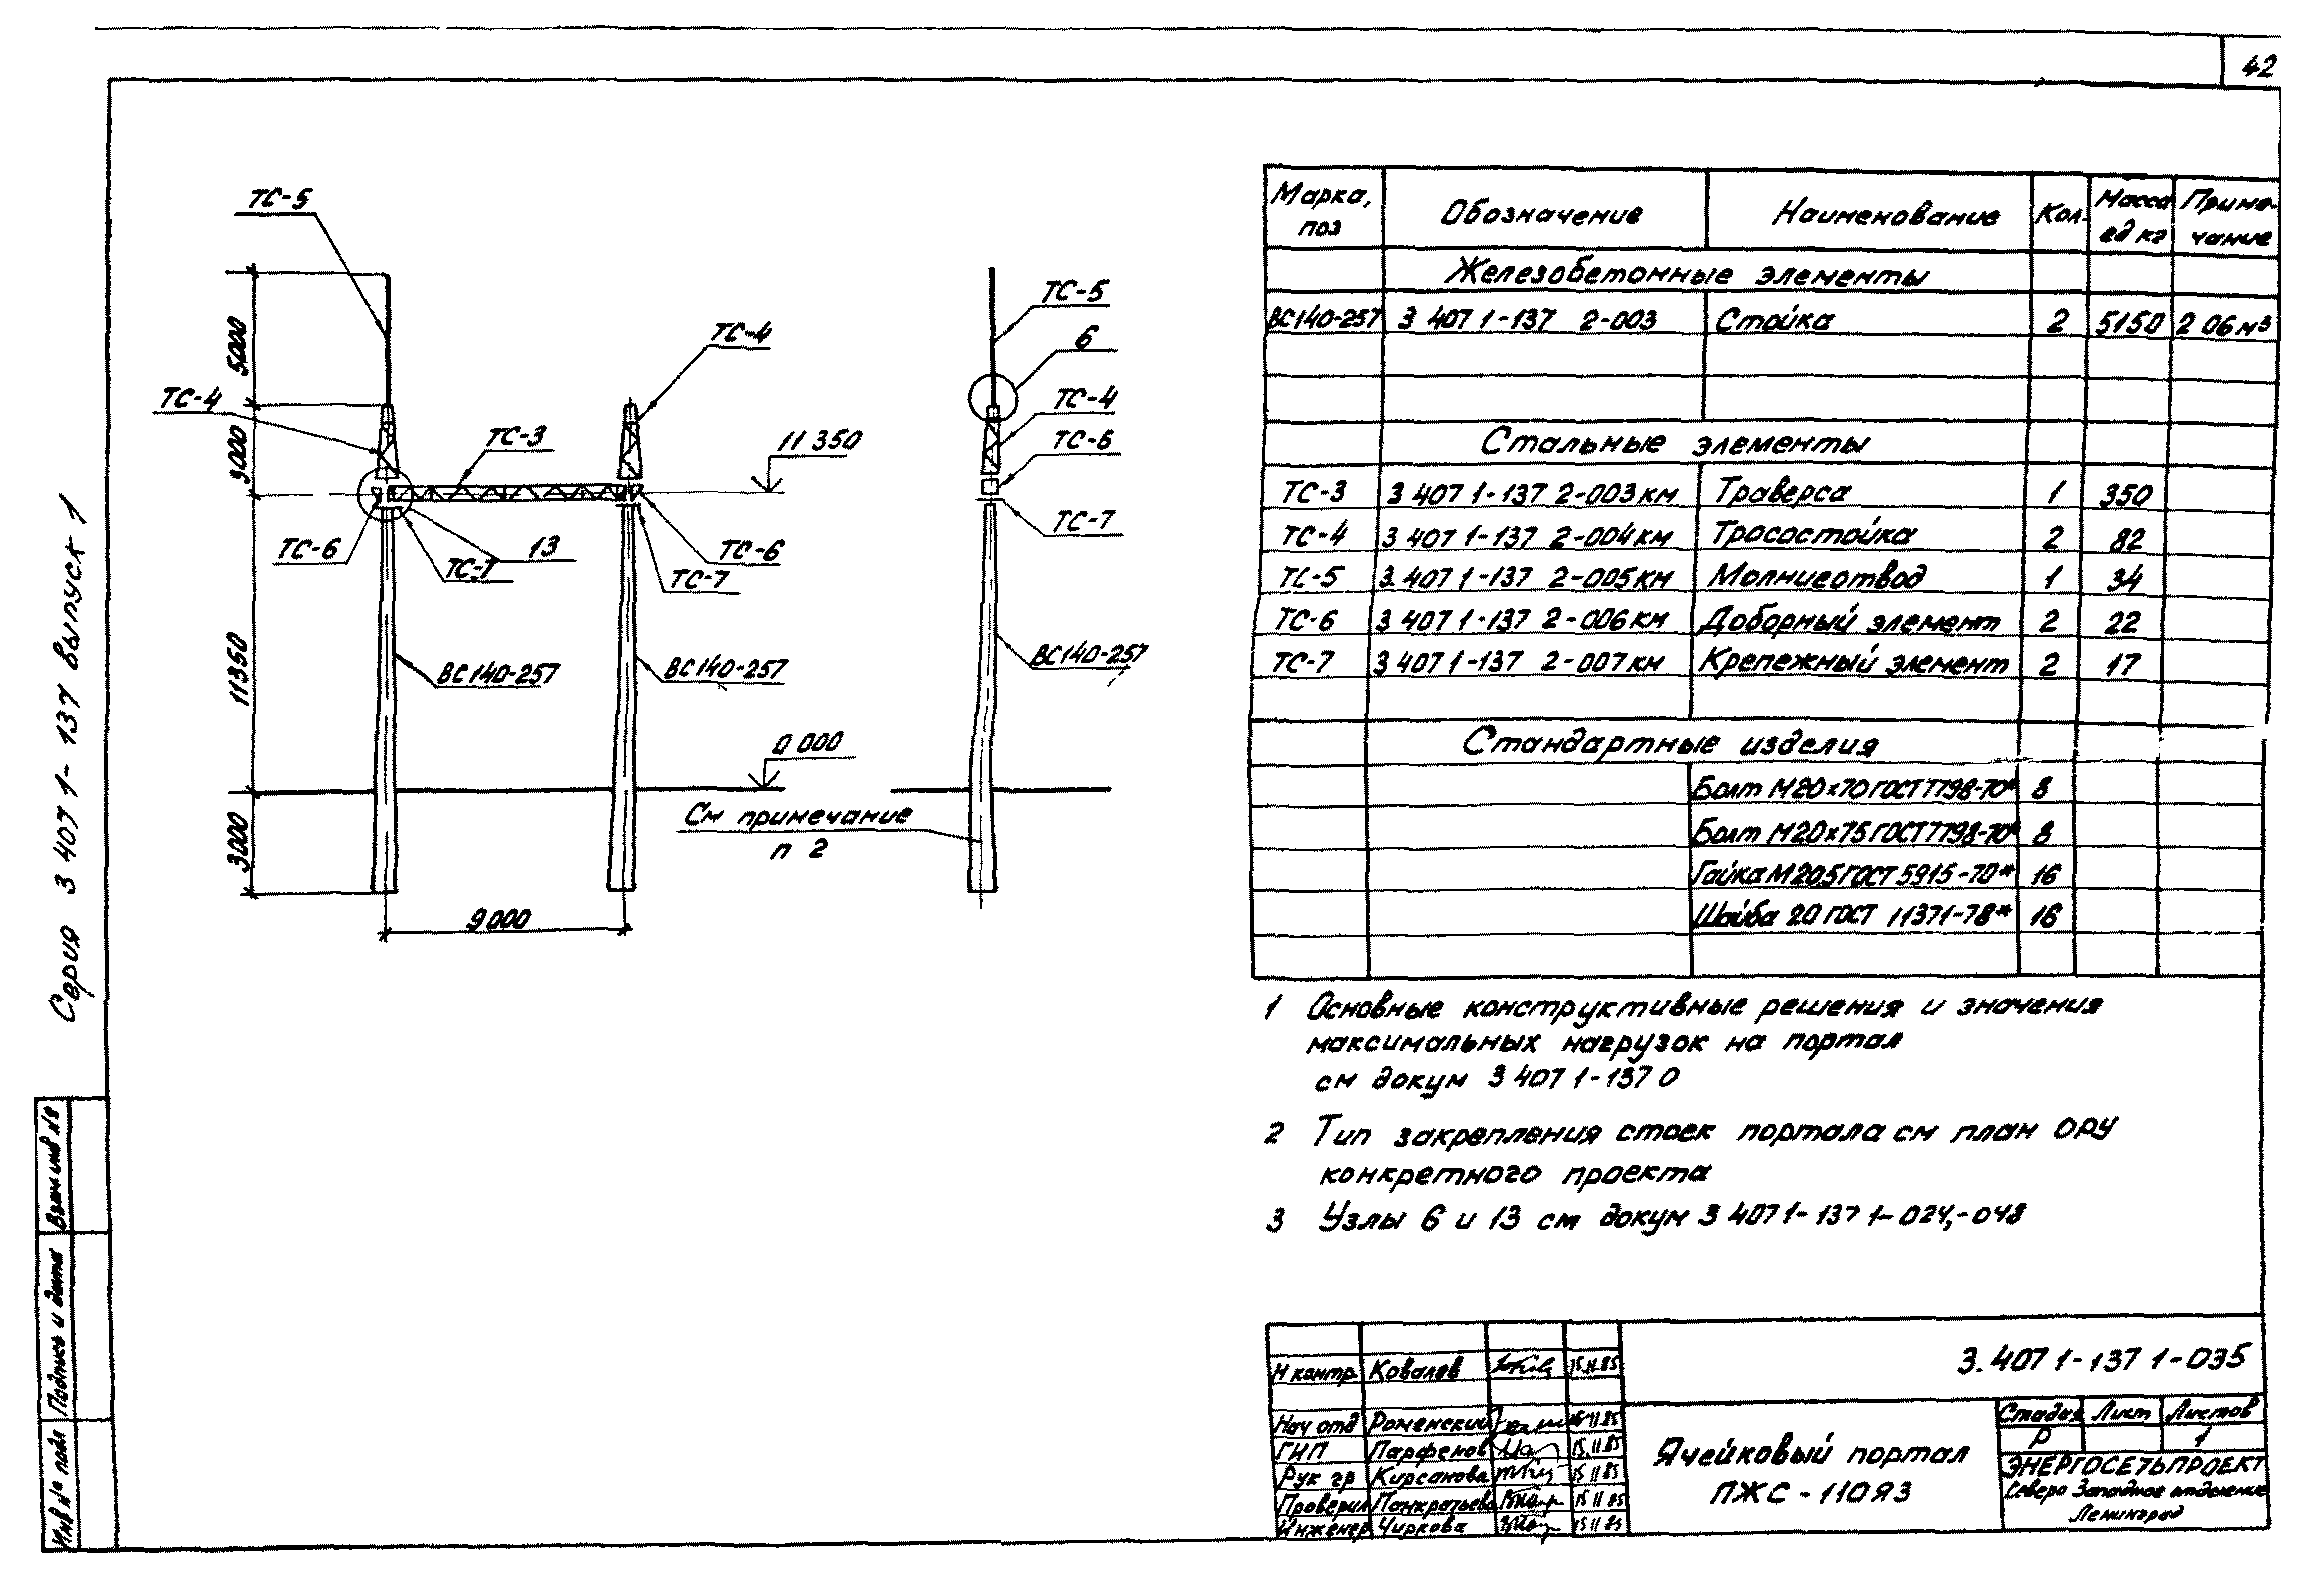 42
Серия 3 407 1-137 выпуск 1
ТС-5
ТС-4
ТС-3
ТС-4
11 350
ТС-6
13
ТС-7
ТС-6
ТС-7
ВС140-257
ВС140-257
0 000
См примечание
п 2
5000
3000
11350
3000
9000
ТС-5
6
ТС-4
ТС-6
ТС-7
ВС140-257
Марка, поз Обозначение Наименование Кол. Масса ед кг Приме-чание
Железобетонные элементы
ВС140-257 3 407 1-137 2-003 Стойка 2 5150 2 06 м3
Стальные элементы
ТС-3 3 407 1-137 2-003км Траверса 1 350
ТС-4 3 407 1-137 2-004км Тросостойка 2 82
ТС-5 3.407 1-137 2-005км Молниеотвод 1 34
ТС-6 3 407 1-137 2-006км Доборный элемент 2 22
ТС-7 3 407 1-137 2-007км Крепежный элемент 2 17
Стандартные изделия
Болт М20х70 ГОСТ7798-70* 8
Болт М20х75 ГОСТ7798-70* 8
Гайка М20.5 ГОСТ 5915-70* 16
Шайба 20 ГОСТ 11371-78* 16
1 Основные конструктивные решения и значения
максимальных нагрузок на портал
см докум 3 407 1-137 0
2 Тип закрепления стоек портала см план ОРУ
конкретного проекта
3 Узлы 6 и 13 см докум 3 407 1-137 1-024,-048
Взам инв №
Подпись и дата
Инв № подл
Н контр Ковалев 15.11.85
Нач отд Роменский 15 11 85
ГИП Парфенов 15.11 85
Рук гр Кирсанова 15 11 85
Проверил Панкратьева 15 11 85
Инженер Чиркова 15 11 85
3.407 1-137 1-035
Ячейковый портал
ПЖС-110Я3
Стадия Лист Листов
Р 1
ЭНЕРГОСЕТЬПРОЕКТ
Северо Западное отделение
Ленинград